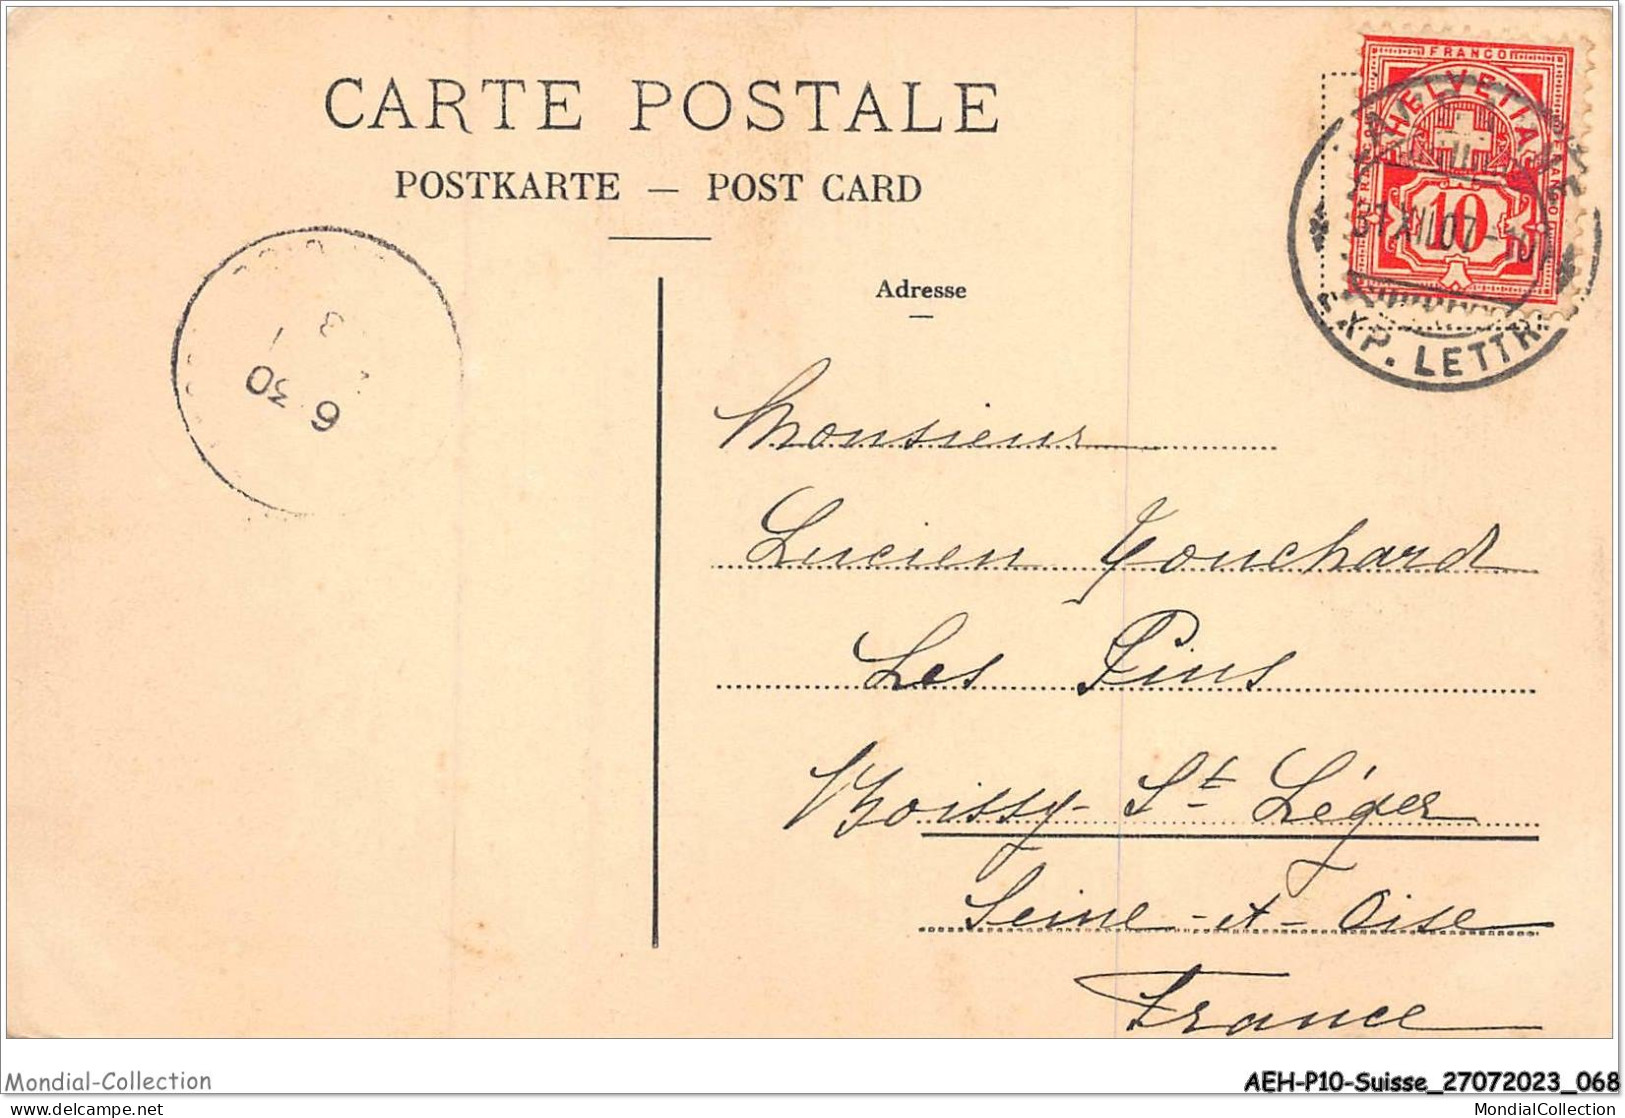 CARTE POSTALE
POSTKARTE — POST CARD
Adresse
FRANCO
HELVETIA
10
31 XII 07
EXP. LETTR.
3
1
6 30
Monsieur
Lucien Touchard
Les Pins
Boissy-St Léger
Seine-et-Oise
France
Mondial-Collection
AEH-P10-Suisse_27072023_068
www.delcampe.net
MondialCollection